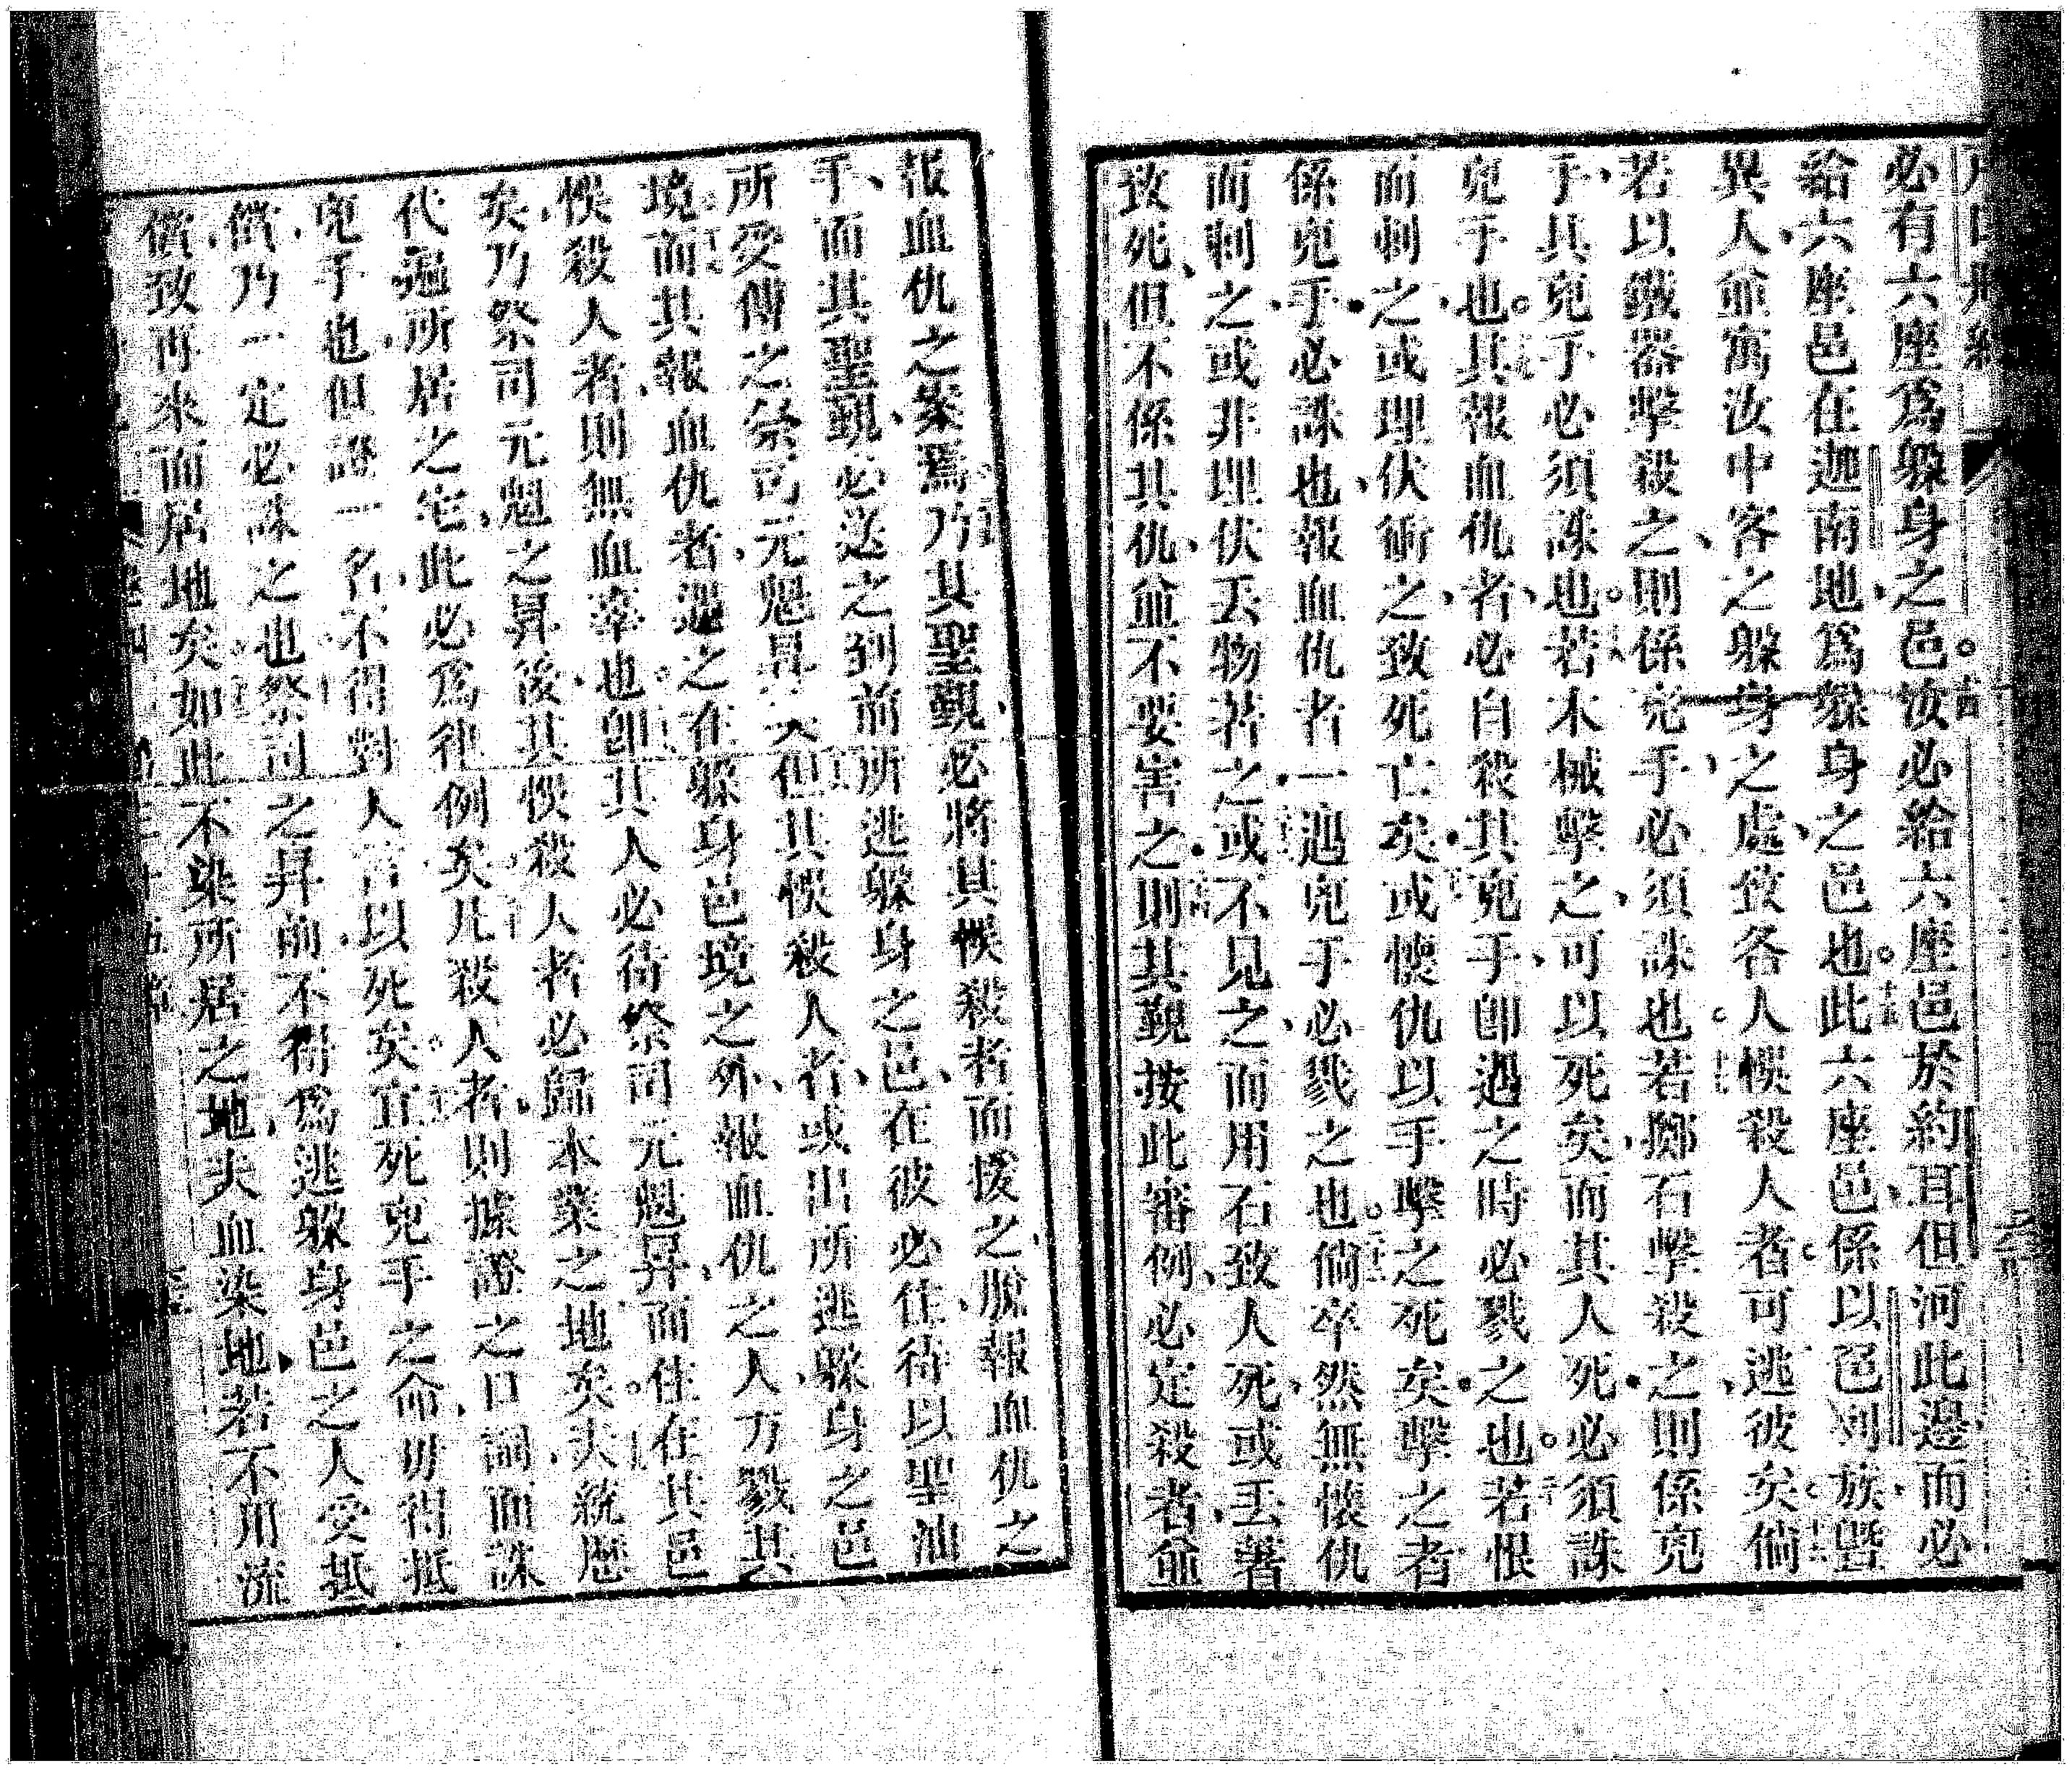 必有六座為躱身之邑。汝必給六座邑於約耳但河此邊而必
給六座邑在迦南地、為躱身之邑也。此六座邑、係以色列族、曁
異人、並寓汝中客之躱身之處、致各人悞殺人者可逃彼矣倘
若以鐵器擊殺之、則係兇手、必須誅也若擲石擊殺之、則係兇
手、其兇手必須誅也。若木械擊之、可以死矣、而其人死、必須誅
兇手也。其報血仇者、必自殺其兇手、即遇之時必戮之也。若恨
而刺之、或埋伏衝之、致死亡矣、或懷仇以手擊之死矣、擊之者
係兇手、必誅也、報血仇者一遇兇手必戮之也。倘卒然無懷仇
而刺之、或非埋伏丟物著之、或不見之、而用石致人死、或丟著
致死、但不係其仇、並不要害之、則其覲按此審例、必定殺者並
報血仇之案焉。乃其聖覲、必將其悞殺者而援之脫報血仇之
手、而其聖覲、必送之到前所逃躱身之邑、在彼必住待以聖油
所受傅之祭司元魁昇、但其悞殺人者、或出所逃躱身之邑
境、而其報血仇者、遇之在躱身邑境之外、報血仇之人、方戮其
悞殺人者、則無血辜也。即其人必待祭司元魁昇、而住在其邑
矣、乃祭司元魁之昇後、其悞殺人者必歸本業之地矣。夫統歷
代遍所居之宅、此必為律例矣、凡殺人者、則據證之口詞而誅
兇手也、但證一名、不得對人言以死矣。宜死兇手之命、毋得抵
償、乃一定必誅之也。祭司之昇前、不得為逃躱身邑之人受抵
償、致再來而居地矣如此不染所居之地、夫血染地、若不用流